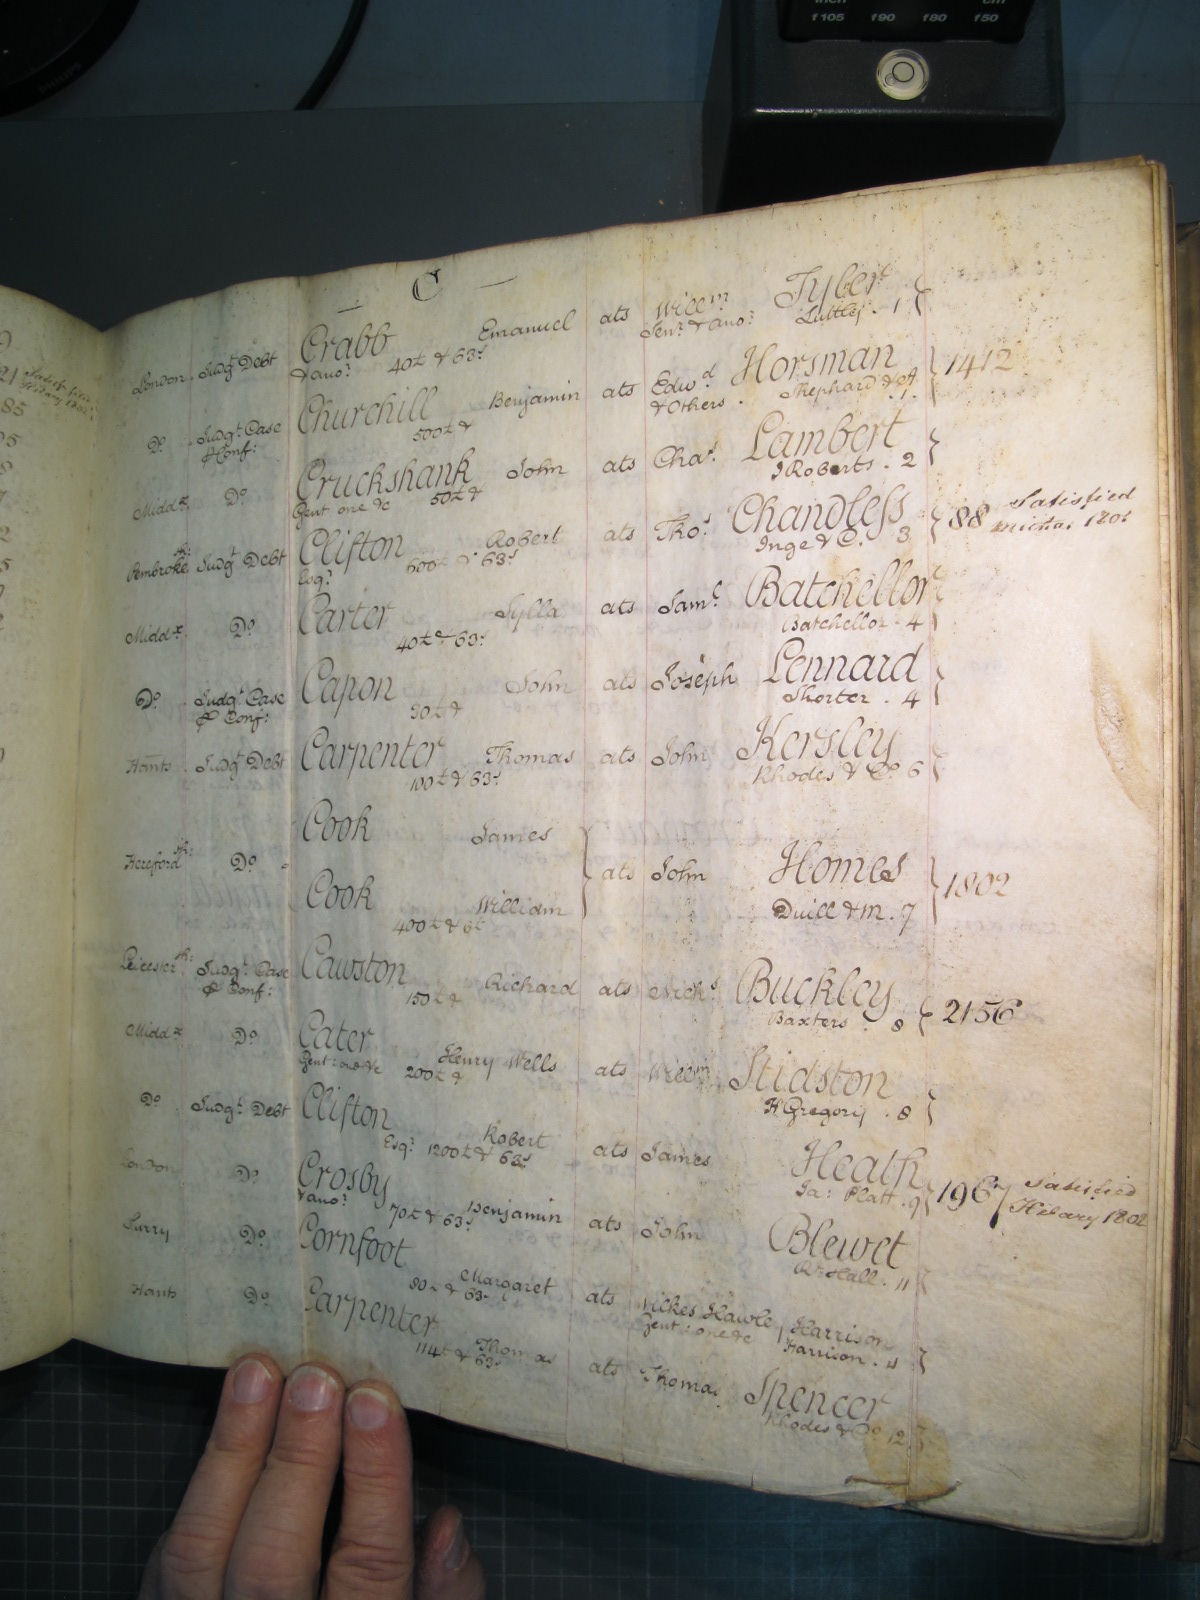 inch cm
f105 f90 f80 f50
PHILIPS
— C —
London Judgt Debt Crabb Emanuel ats Willm Tyber
& ano: 40£ & 63s Senr & ano: Luttly . 1
Do Judgt Case Churchill Benjamin ats Edwd Horsman 1412
& Conf: 500£ & & Others . Shephard & A . 1 .
Middx Do Cruckshank John ats Chas Lambert
Gent one &c 50£ & J Roberts . 2
Pembroke sh: Judgt Debt Clifton Robert ats Thos Chandless 88 Satisfied
Esqr 600£ & 63s Inge & C. 3 Michas 1801
Middx Do Carter Sylla ats Saml Batchellor
40£ & 63s Batchellor . 4
Do Judgt Case Capon John ats Joseph Lennard
& Conf: 30£ & Shorter . 4
Hants Judgt Debt Carpenter Thomas ats John Kersley
100£ & 63s Rhodes & Co 6
Cook James
Hereford sh: Do ats John Homes 1802
Cook William
400£ & 6£ Duill & M . 7
Leicester sh: Judgt Case Cawston Richard ats Nichs Buckley 2156
& Conf: 150£ & Baxters . 8
Middx Do Cater Henry Wells ats Willm Stidston
Gent: one &c 200£ & H Gregory . 8
Do Judgt Debt Clifton Robert ats James Heath 1967 Satisfied
Esqr 1200£ & 63s Ja: Platt . 9 Hilary 1802
London Do Crosby Benjamin ats John Blewet
& ano: 70£ & 63s Rt Hall . 11
Surry Do Cornfoot Margaret ats Wickes Hawle Harrison
80£ & 63s Gent: one &c Harrison . 11
Hants Do Carpenter Thomas ats Thomas Spencer
114£ & 63s Rhodes & Co 12